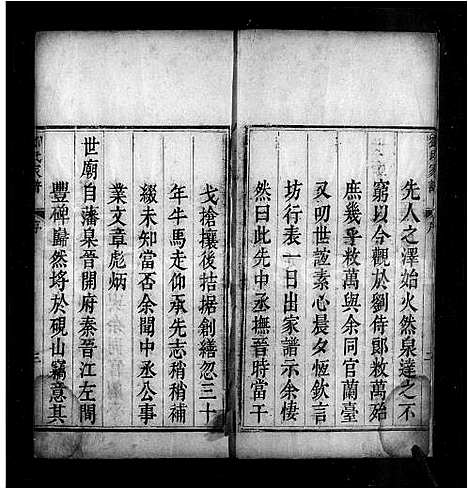 先人之澤始火然泉達之不
窮以今觀於劉侍郎救萬殆
庶幾乎救萬與余同官蘭臺
又叨世誼素心晨夕恆欽言
坊行表一日出家譜示余棲
然曰此先中丞撫晉時當干
戈搶攘後拮据創繕忽三十
年牛馬走仰承先志稍稍補
綴未知當否余聞中丞公事
業文章彪炳
世廟自藩臬晉開府秦晉江左間
豐碑巋然埒於硯山竊意其